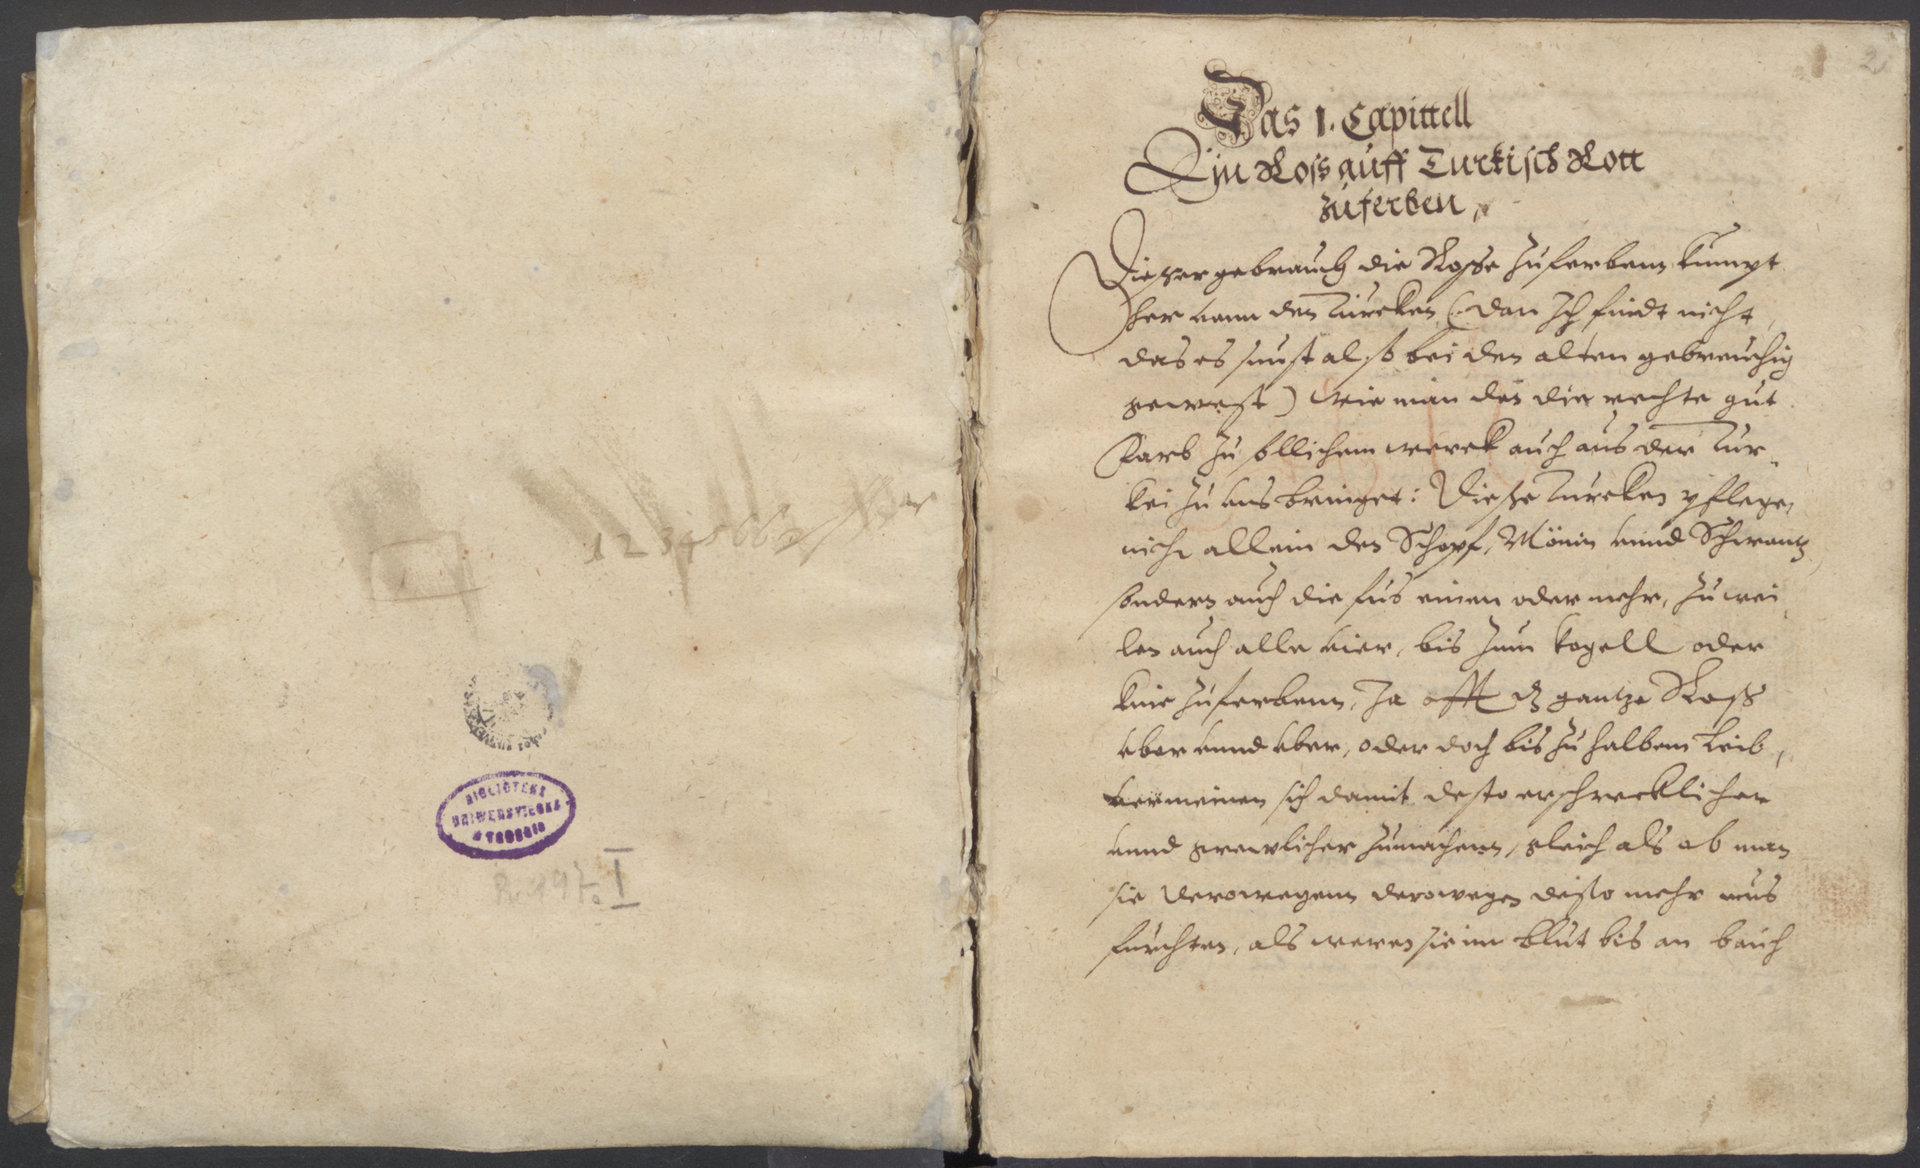 1 2 3 4 5 6 6
BIBLIOTEKA
UNIWERSYTECKA
W TORUNIU
I
2
Das 1. Capittell
Ein Ross auff Turkisch Rott
zuferben,
Dieser gebrauch die Rosse zuferbenn kumpt
her vonn den Turcken (: dan Ich findt nicht,
das es sunst also bei den alten gebreuchig
gewest) wie man den die rechte gut
Farb zu sollichem werck auch aus der Tur¬
kei zu uns bringet: Diese Turcken pflegen
nicht allein den Schopf, Mönin vnnd Schwantz
sondern auch die fus einen oder mehr, zu wei
len auch alle vier, bis zum kogell oder
knie zuferbenn, Ja offt dz gantze Ross
vber vnnd vber, oder doch bis zu halbem Leib,
vermeinen sich damit desto erschrecklicher
vnnd grewlicher zumachenn, gleich als ob man
sie derowegenn derowegen desto mehr mus
furchten, als weren sie im blut bis an bauch